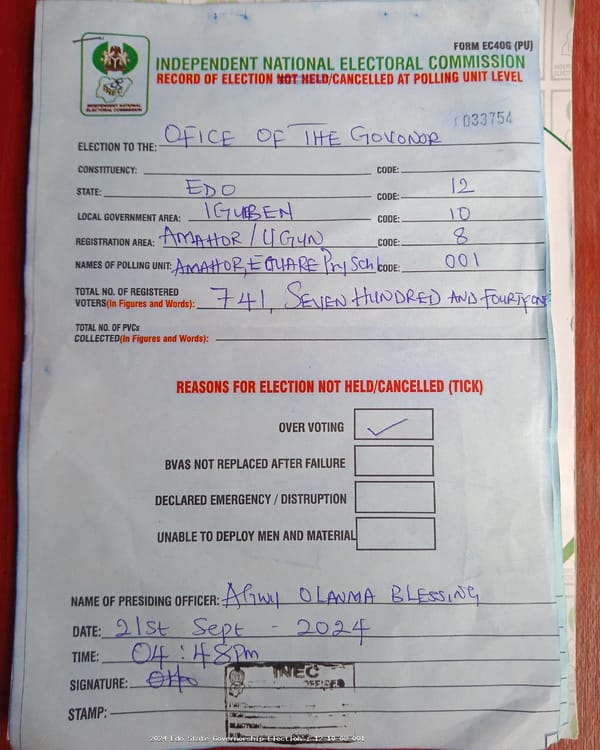 FORM EC40G (PU)
INDEPENDENT NATIONAL ELECTORAL COMMISSION
RECORD OF ELECTION NOT HELD/CANCELLED AT POLLING UNIT LEVEL
INDEPENDENT NATIONAL
ELECTORAL COMMISSION
033754
ELECTION TO THE: OFICE OF THE GOVONOR
CONSTITUENCY: CODE:
STATE: EDO CODE: 12
LOCAL GOVERNMENT AREA: IGUEBEN CODE: 10
REGISTRATION AREA: AMAHOR / UGUN CODE: 8
NAMES OF POLLING UNIT: AMAHOR, EGUARE Pry Schl CODE: 001
TOTAL NO. OF REGISTERED
VOTERS(In Figures and Words): 741, SEVEN HUNDRED AND FOURTY ONE
TOTAL NO. OF PVCs
COLLECTED(In Figures and Words):
REASONS FOR ELECTION NOT HELD/CANCELLED (TICK)
OVER VOTING
BVAS NOT REPLACED AFTER FAILURE
DECLARED EMERGENCY / DISTRUPTION
UNABLE TO DEPLOY MEN AND MATERIAL
NAME OF PRESIDING OFFICER: AGWU OLANMA BLESSING
DATE: 21st Sept - 2024
TIME: 04:48pm
SIGNATURE:
INEC
STAMP:
ELECTION
2024 Edo State Governorship Election : 12-10-08-001